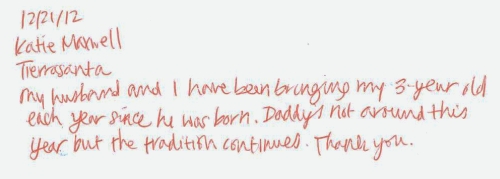 12/21/12
Katie Maxwell
Tierrasanta
My husband and I have been bringing my 3-year old
each year since he was born. Daddy's not around this
year but the tradition continues. Thank you.